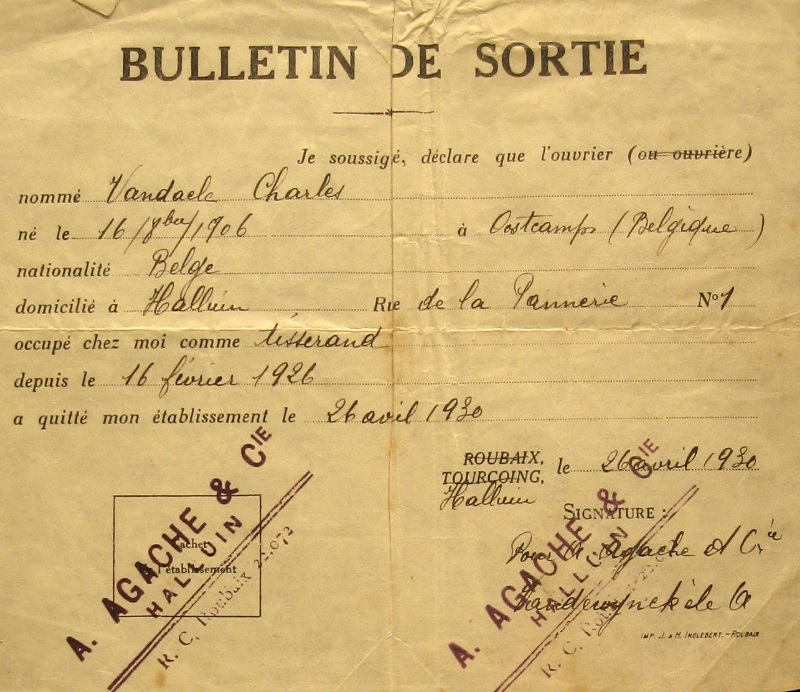 BULLETIN DE SORTIE
Je soussigé, déclare que l'ouvrier (ou ouvrière)
nommé Vandaele Charles
né le 16/8bre/1906 à Oostcamps (Belgique)
nationalité Belge
domicilié à Halluin Rue de la Tannerie No 1
occupé chez moi comme tisserand
depuis le 16 février 1926
a quitté mon établissement le 26 avril 1930
ROUBAIX,
TOURCOING, le 26 avril 1930
Halluin
SIGNATURE :
Cachet
de l'établissement
A. AGACHE & CIE
HALLUIN
R. C. Roubaix 22.072
Pour A. Agache et Cie
Vandewynckèle A
A. AGACHE & CIE
HALLUIN
R. C. Roubaix
IMP. J. & H. INGLEBERT. - ROUBAIX